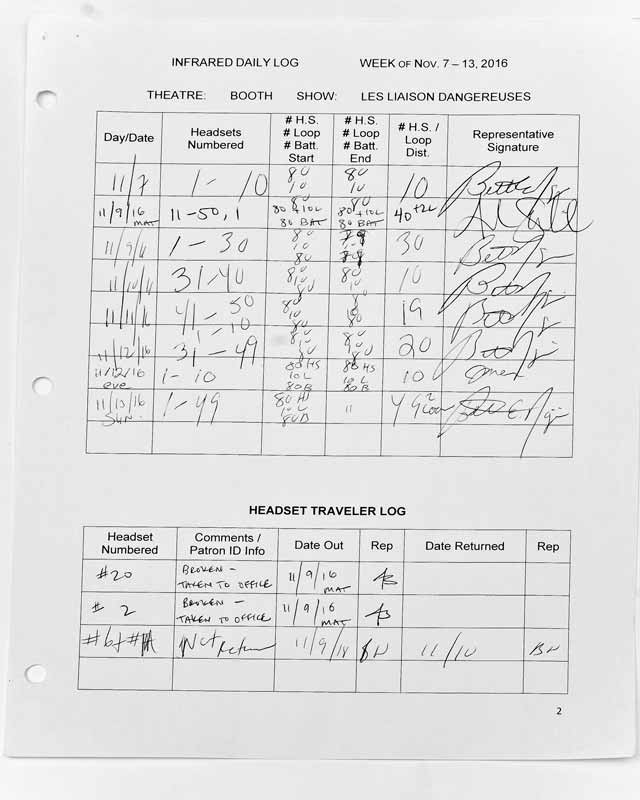 INFRARED DAILY LOG WEEK OF NOV. 7 – 13, 2016
THEATRE: BOOTH SHOW: LES LIAISON DANGEREUSES
Day/Date
Headsets Numbered
# H.S. # Loop # Batt. Start
# H.S. # Loop # Batt. End
# H.S. / Loop Dist.
Representative Signature
11/7 1-10 80 10 80 80 10 80 10
11/9/16 MAT 11-50, 1 80 + 10L 80 BAT 80 + 10L 80 BAT 40 +2L
11/9/16 1-30 80 10 80 30
11/10/16 31-40 80 10 80 80 10 80 10
11/11/16 41-50 80 10 80 80 10 80 19
1-10
11/12/16 31-49 80 10 80 80 10 80 20
11/12/16 eve 1-10 80 HS 10 L 80 B 80 HS 10 L 80 B 10
11/13/16 SUN. 1-49 80 H 10 L 80 B 11 49 2 Loop
HEADSET TRAVELER LOG
Headset Numbered
Comments / Patron ID Info
Date Out
Rep
Date Returned
Rep
#20 BROKEN – TAKEN TO OFFICE 11/9/16 MAT AB
# 2 BROKEN – TAKEN TO OFFICE 11/9/16 MAT AB
Not Return 11/9/16 BN 11/10 BN
2